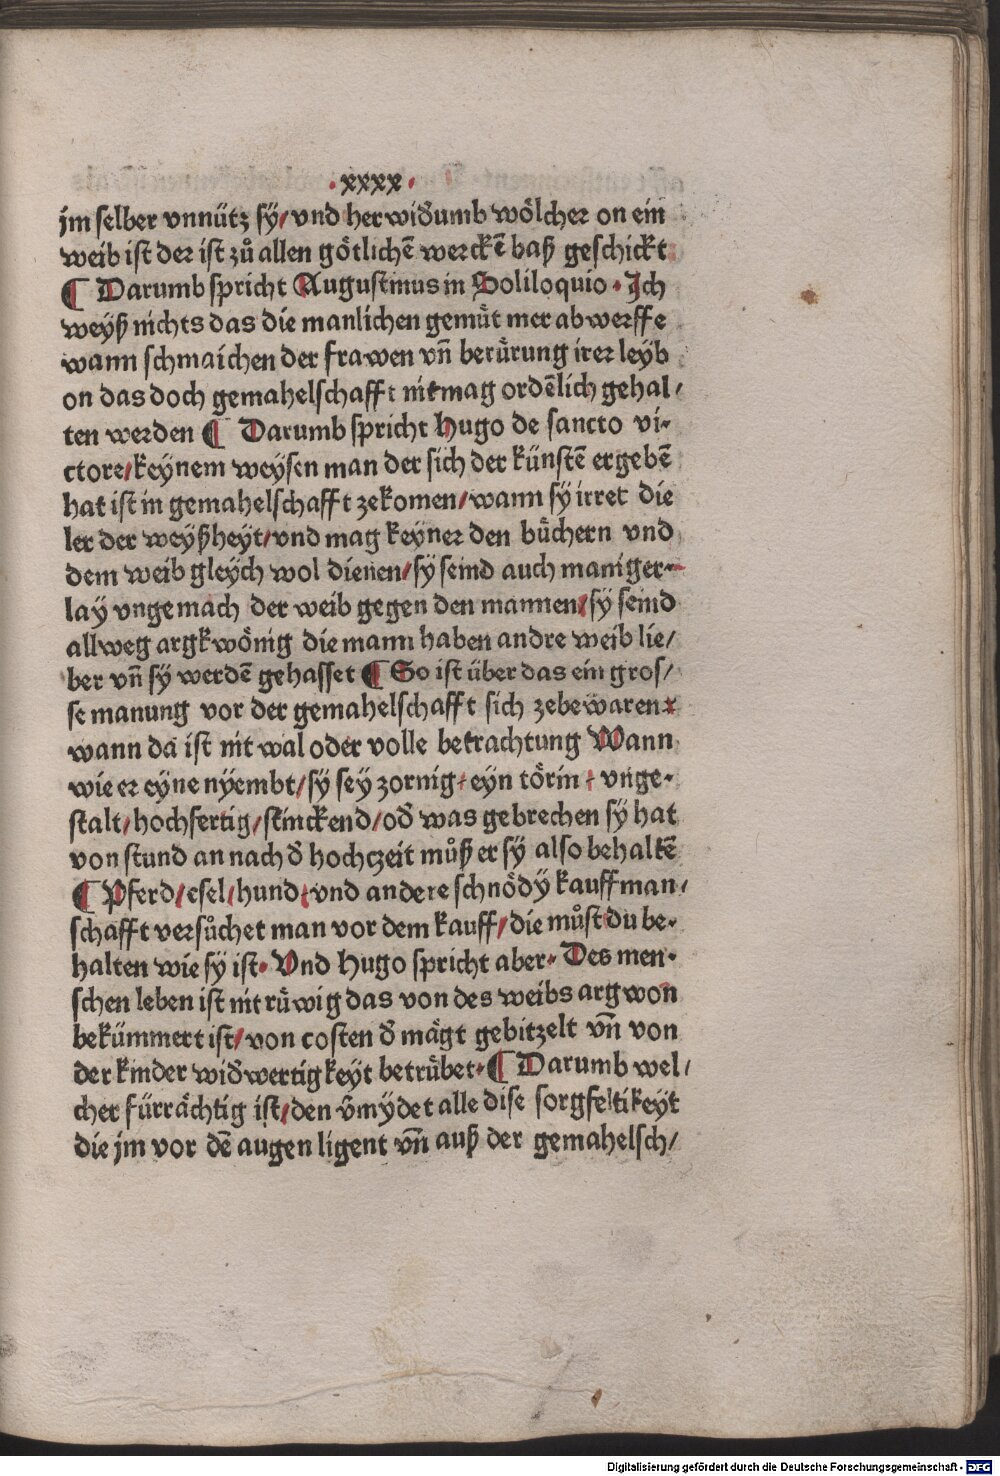 ·xxxx·
jm selber vnnütz sÿ/ vnd her wid̄umb wölcher on ein
weib ist der ist zů allen götlichē werckē baß geschickt
¶ Darumb spricht Augustinus in Soliloquio · Ich
weyß nichts das die manlichen gemüt mer ab werffe
wann schmaichen der frawen vn̄ berürung irer leyb
on das doch gemahelschafft nit mag ordēlich gehal/
ten werden ¶ Darumb spricht Hugo de sancto vi-
ctore/ keynem weysen man der sich der künstē ergebē
hat ist in gemahelschafft zekomen/ wann sy irret die
ler der weyßheyt/ vnd mag keyner den büchern vnd
dem weib gleych wol dienen/ sy seind auch maniger-
lay vngemach der weib gegen den mannen/ sy seind
allweg argkwönig die mann haben andre weib lie/
ber vn̄ sy werdē gehasset ¶ So ist über das ein gros/
se manung vor der gemahelschafft sich zebewaren
wann da ist nit wal oder volle betrachtung Wann
wie er eyne nyembt/ sy sey zornig/ eyn törin/ vnge-
stalt/ hochfertig/ stinckend/ od̄ was gebrechen sy hat
von stund an nach d̄ hochczeit můß er sy also behaltē
¶ Pferd/ esel/ hund/ vnd andere schnödy kauffman/
schafft versůchet man vor dem kauff/ die můst du be-
halten wie sy ist· Vnd Hugo spricht aber· Des men-
schen leben ist nit rüwig das von des weibs argwon
bekümmert ist/ von costen d̄ mägt gebitzelt vn̄ von
der kinder wid̄wertigkeyt betrübet·¶ Darumb wel/
cher fürrächtig ist/ den v̄mydet alle dise sorgfeltikeyt
die jm vor dē augen ligent vn̄ auß der gemahelsch/
Digitalisierung gefördert durch die Deutsche Forschungsgemeinschaft - DFG